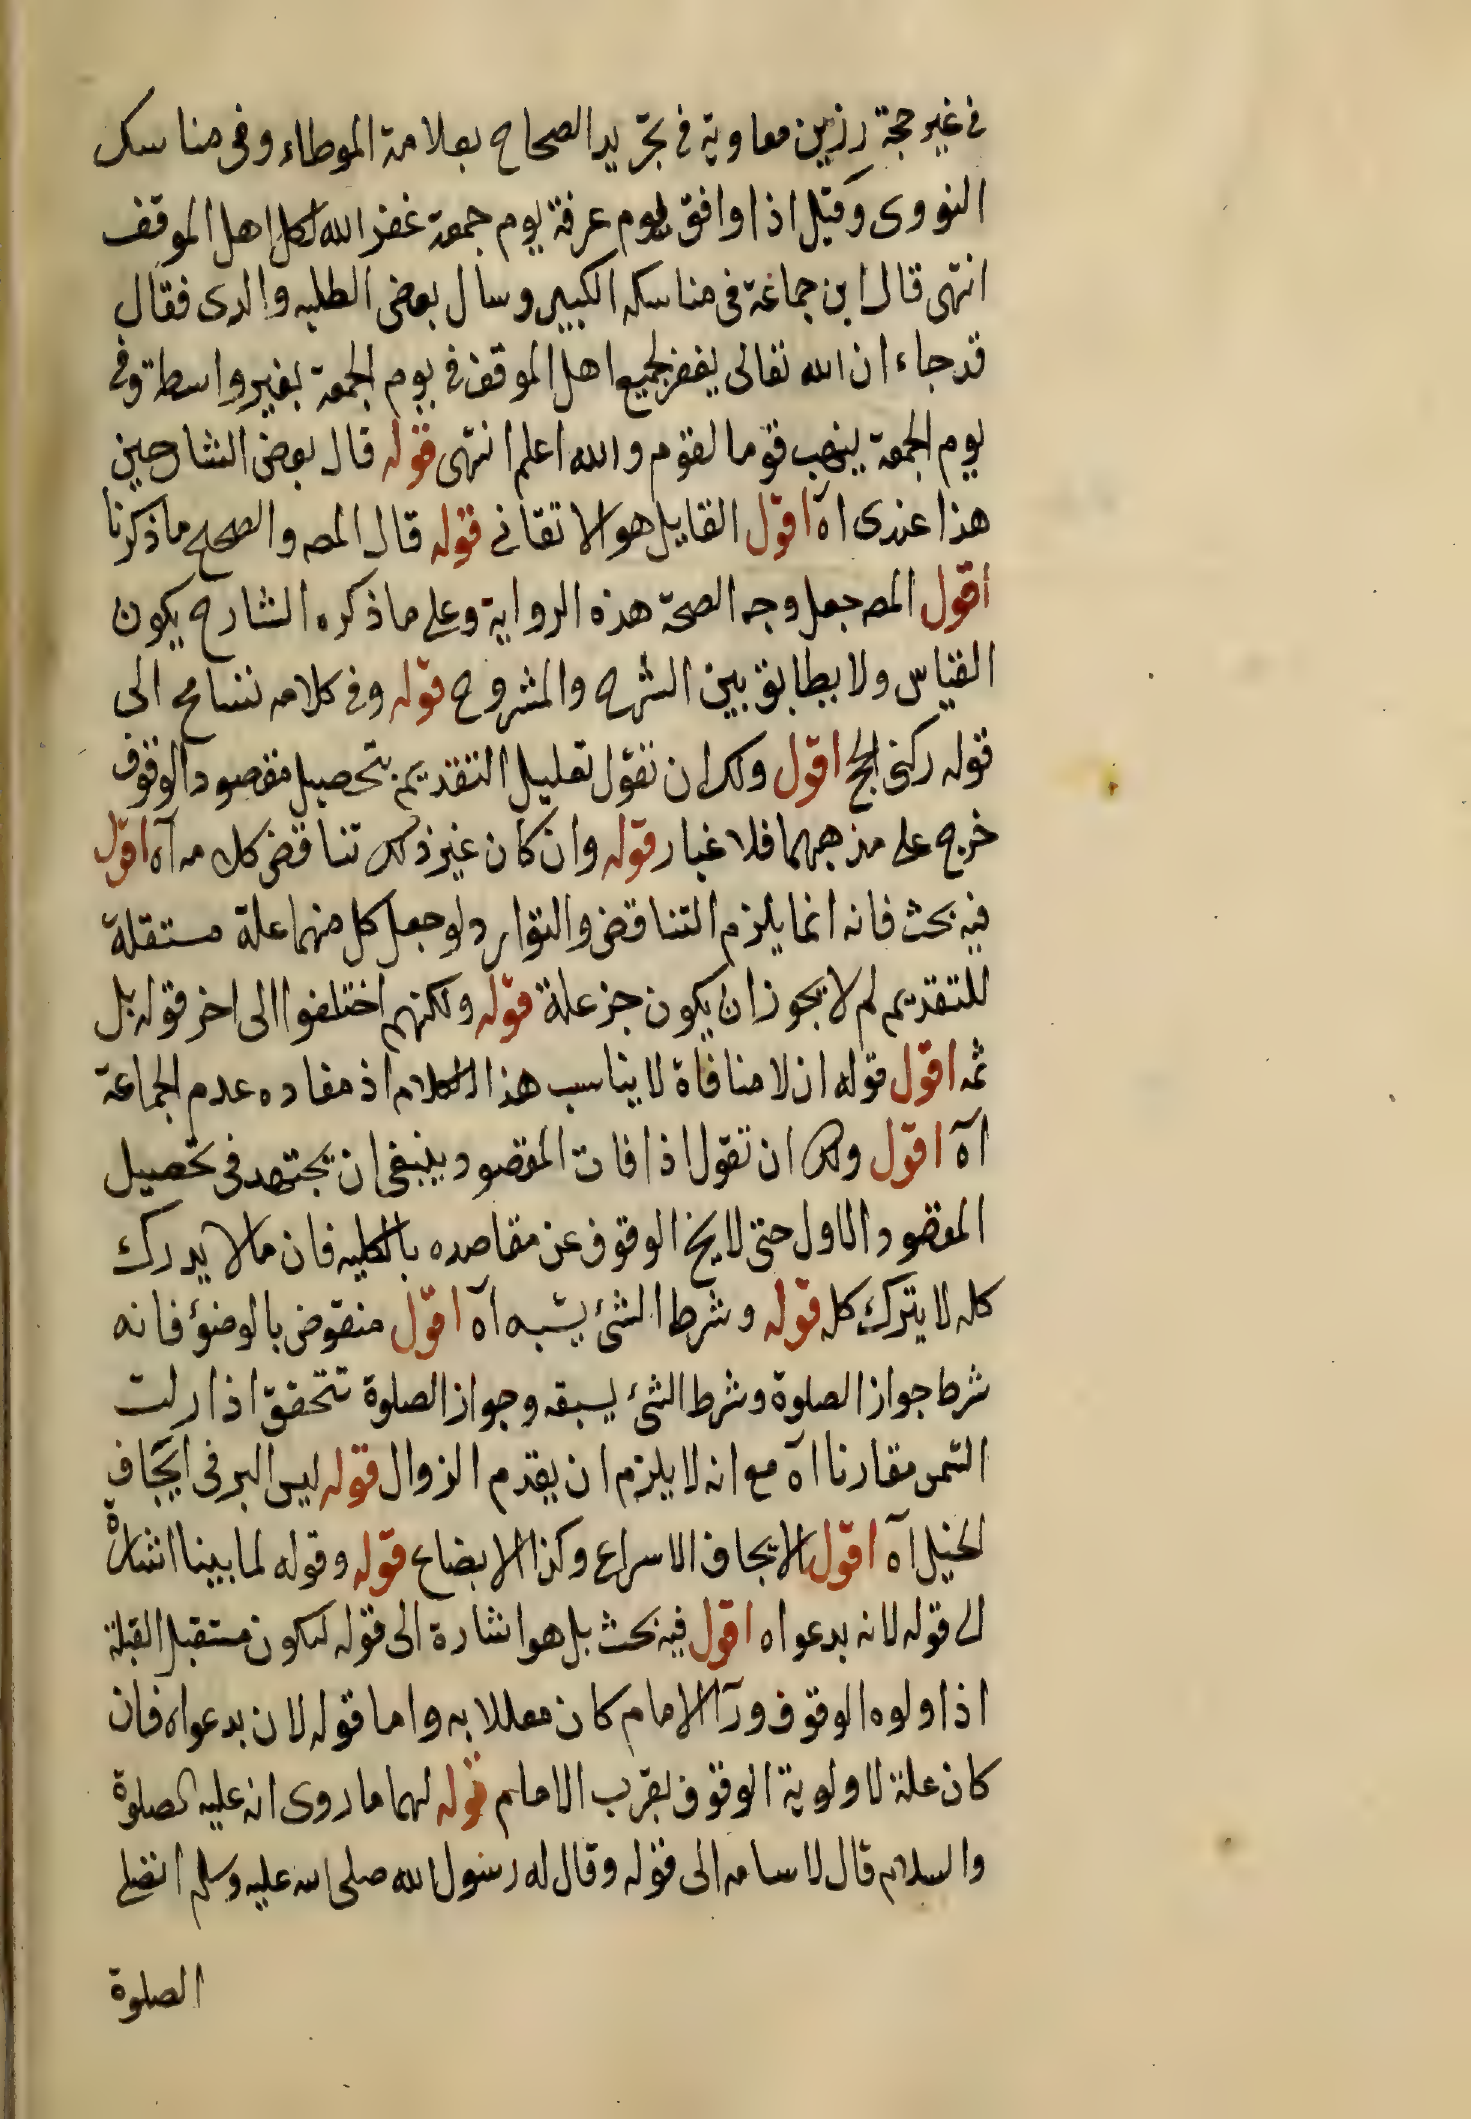 في غير حجة رزين معاوية في تجريد الصحاح بعلامة الموطاء وفي مناسك
النووى وقيل اذا وافق يوم عرفة يوم جمعة غفر الله لكل اهل الموقف
انتهى قال ابن جماعة في مناسكه الكبير وسال بعض الطلبه والدى فقال
قد جاء ان الله تعالى يغفر لجميع اهل الموقف في يوم الجمعة بغير واسطة وفي
يوم الجمعة ينهب قوما لقوم والله اعلم انتهى قوله قال بعض الشارحين
هذا عندى اه اقول القايل هو الاتقاني قوله قال المص والصحيح ماذكرنا
اقول المص جعل وجه الصحة هذه الرواية وعلى ما ذكره الشارح يكون
القياس ولا يطابق بين الشرح والمشروح قوله وفي كلامه تسامح الى
قوله ركنى الحج اقول ولك ان تقول تعليل التقديم بتحصيل مقصود الوقوف
خرج على مذهبهما فلا غبار قوله وان كان غير ذلك تناقض كلامه آه اقول
فيه بحث فانه انما يلزم التناقض والتوارد لو جعل كل منهما علة مستقلة
للتقديم لم لا يجوز ان يكون جز علة قوله ولكنهم اختلفوا الى اخر قوله بل
ثمه اقول قوله ان لا منافاة لا يناسب هذا الكلام اذ مفاده عدم الجماعة
آه اقول ولك ان تقول اذا فات المقصود ينبغى ان يجتهد في تحصيل
المقصود الاول حتى لا يخ الوقوف عن مقاصده بالكليه فان مالا يدرك
كله لا يترك كله قوله وشرط الشئ يسبه آه اقول منقوض بالوضؤ فانه
شرط جواز الصلوة وشرط الشئ يسبقه وجواز الصلوة تتحقق اذا رلت
الشمس مقارنا آه مع انه لا يلزم ان يقدم الزوال قوله ليس البر في ايجاف
الخيل آه اقول الايجاف الاسراع وكذا الايضاع قوله وقوله لما بينا اشارة
الى قوله لانه يدعو اه اقول فيه بحث بل هو اشارة الى قوله ليكون مستقبل القبلة
اذا ولوه الوقوف ورآ الامام كان معللا به واما قوله لان يدعو اه فان
كان علة لاولوية الوقوف بقرب الامام قوله لهما ما روى انه عليه الصلوة
والسلام قال لاسامه الى قوله وقال له رسول الله صلى الله عليه وسلم انضلى
الصلوة